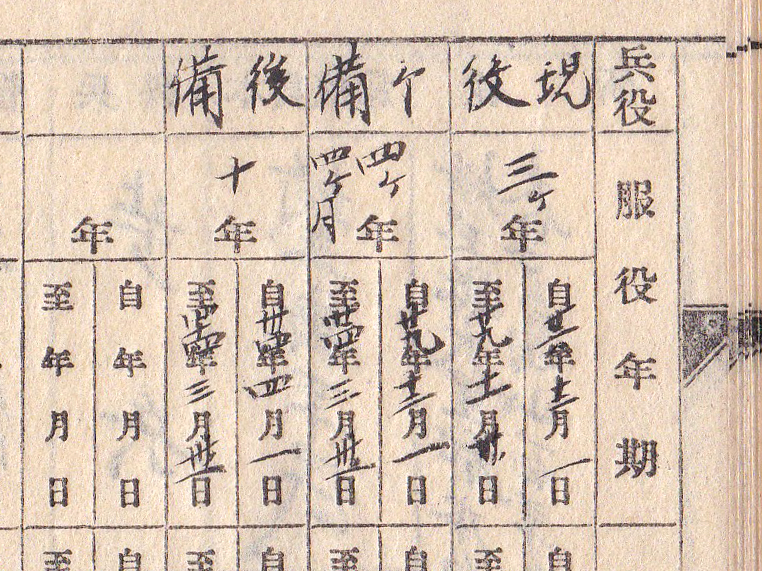 兵役
服役年期
現役
三ケ年
自廿六年十二月一日
至廿九年十一月卅日
予備
四ケ年四ケ月
自廿九年十二月一日
至卅四年三月卅一日
後備
十年
自卅四年四月一日
至四十四年三月卅一日
年
自年月日
至年月日
自
至
自
至
自
至
自
至